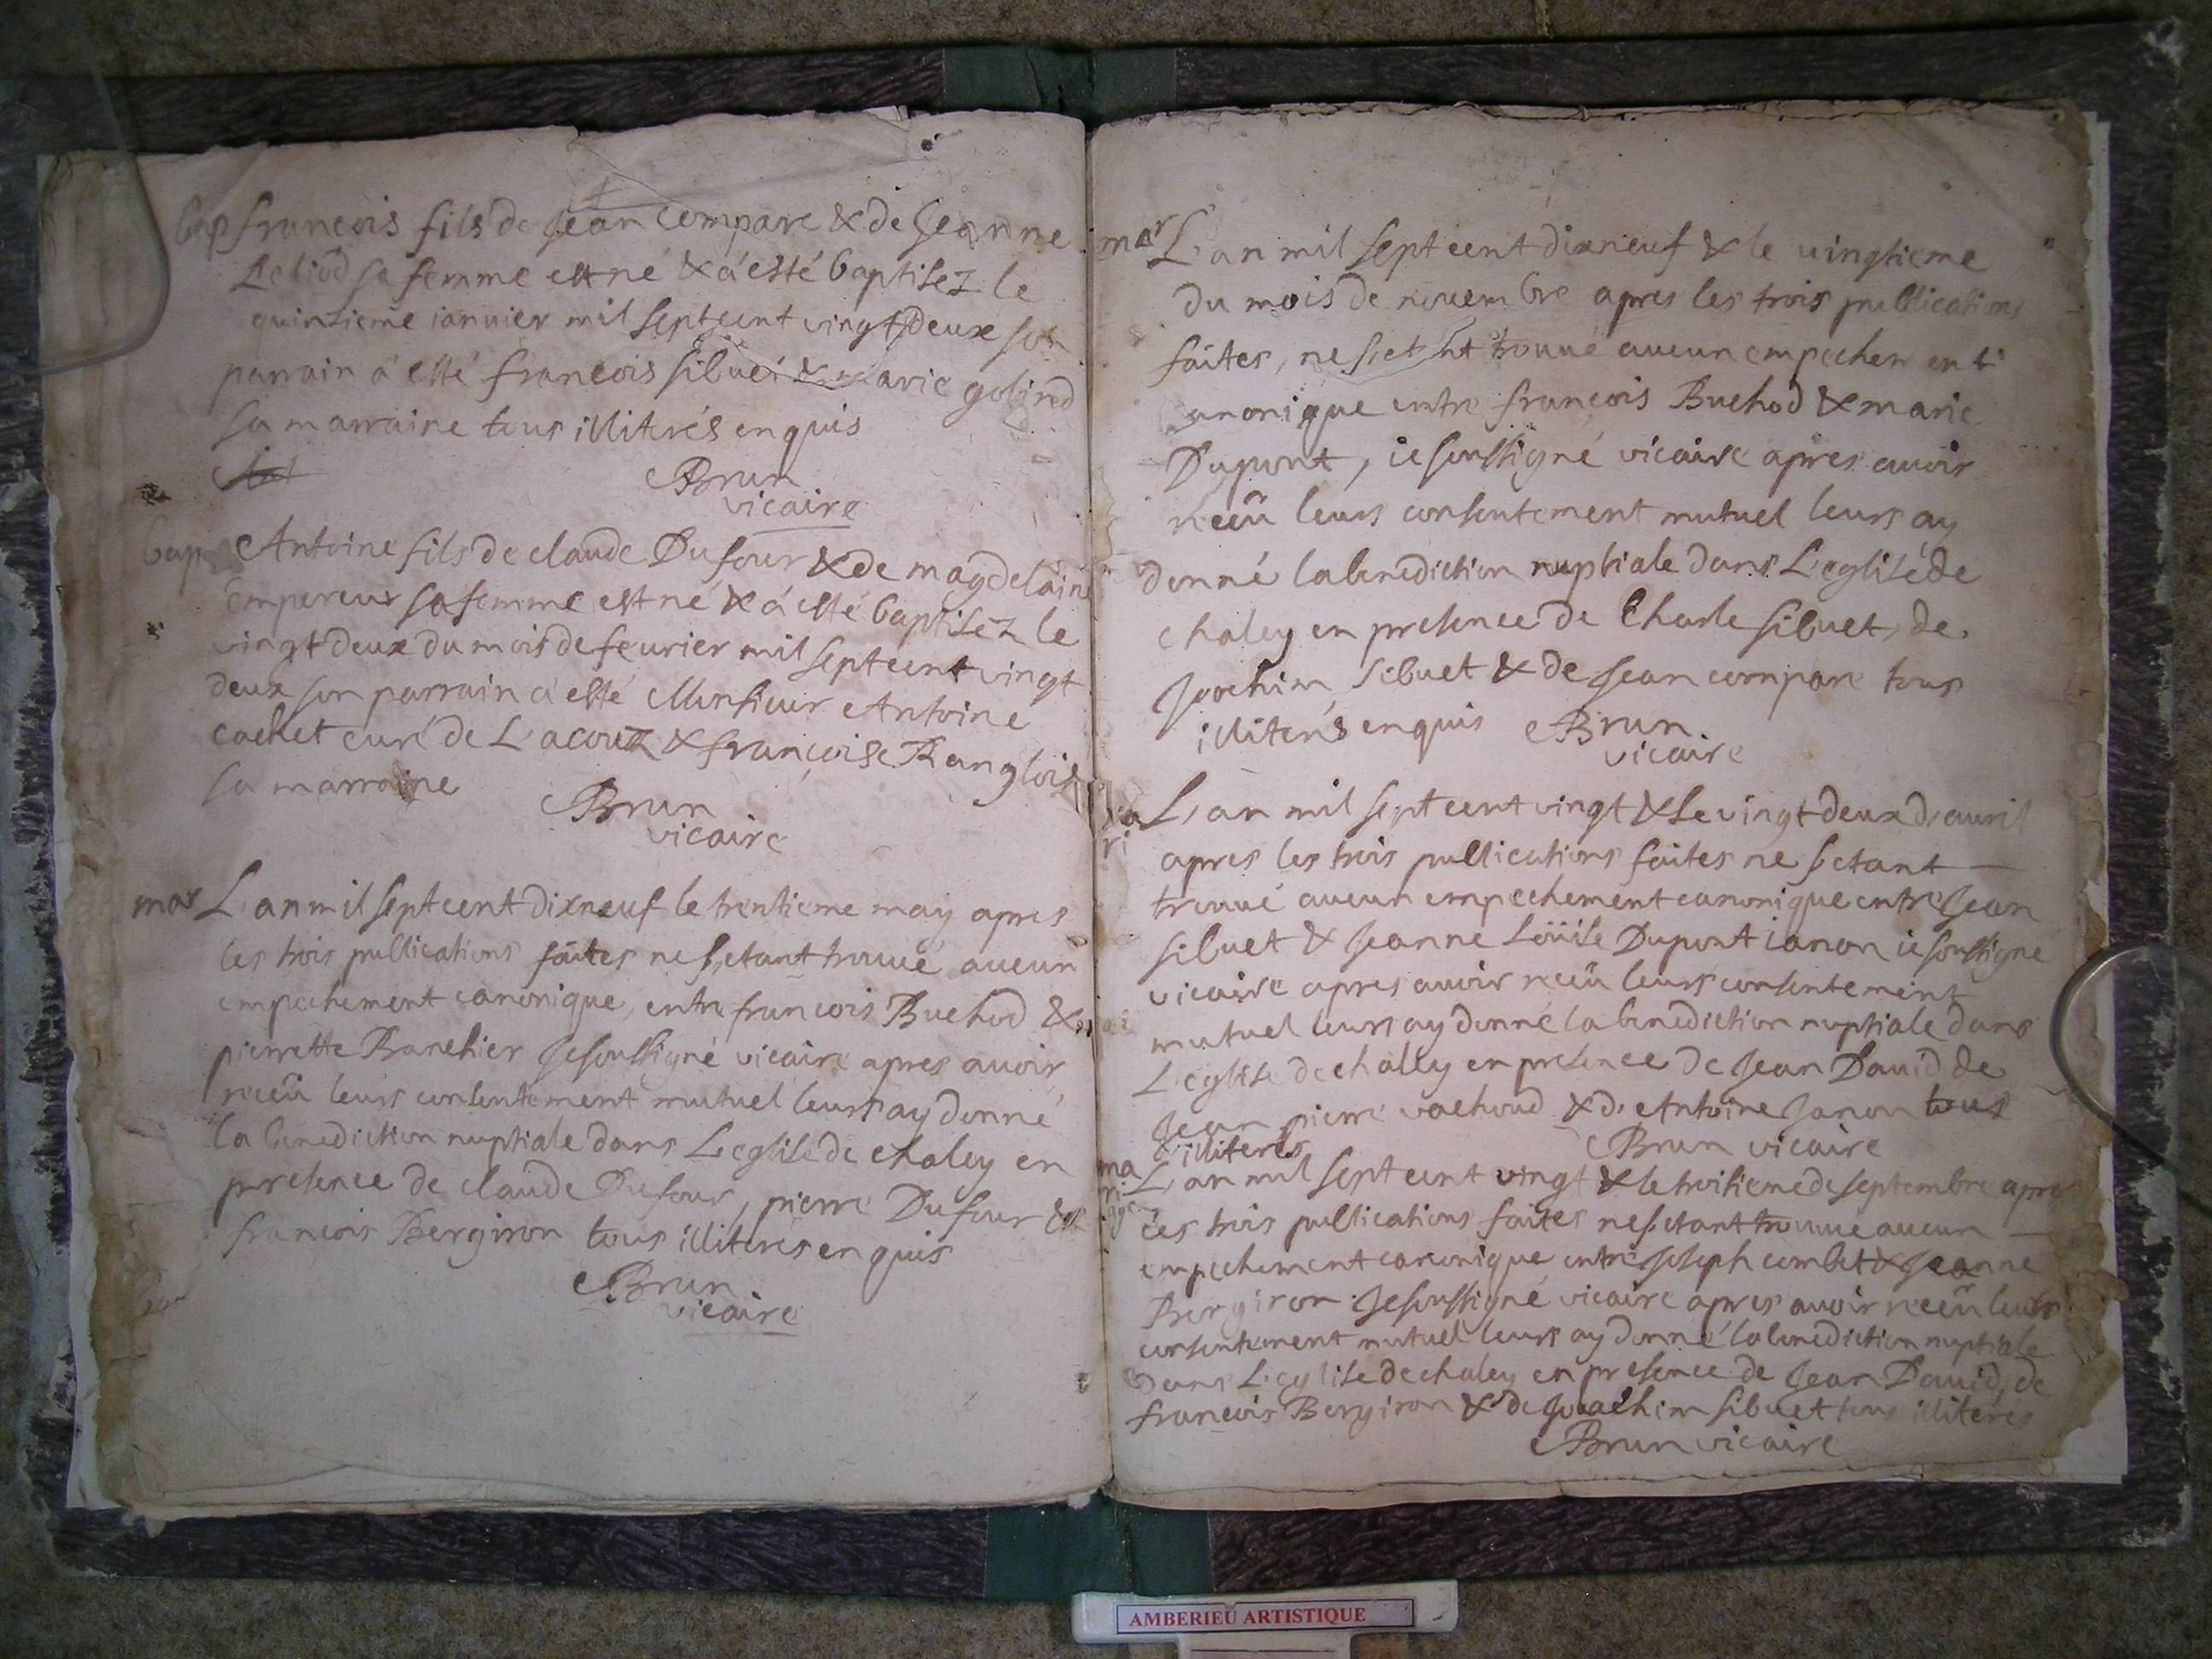 bap francois fils de Jean Compare & de Jeanne
sa femme est né & à esté baptisez le
quinsieme ianuier mil sept cent vingt deux son
parrain à esté francois sibuet & marie golind
sa marraine tous illiterés enquis
Brun
vicaire
bap Antoine fils de claude Dufour & de magdelaine
Empereur sa femme est né & à esté baptisez le
vingt deux du mois de feurier mil sept cent vingt
deux son parrain à esté Monsieur Antoine
cachet curé de L'acoux & francoise Ranglois
sa marraine
Brun
vicaire
mar L'an mil sept cent dixneuf le trentieme may apres
les trois publications faites ne s'etant trouué aucun
empechement canonique, entre francois Buchod &
pierrette Banchier Je soussigné vicaire apres auoir
receu leurs consentement mutuel leurs ay donné
la benediction nuptiale dans L'eglise de chaley en
presence de claude Dufour, pierre Dufour &
francois Bergiron tous illiterés enquis
Brun
vicaire
mar L'an mil sept cent dixneuf & le vingtieme
du mois de nouembre apres les trois publications
faites, ne s'etant trouué aucun empechement
canonique entre francois Buchod & marie
Dupont, ie soussigné vicaire apres auoir
receu leurs consentement mutuel leurs ay
donné la benediction nuptiale dans L'eglise de
chaley en presence de Charle sibuet, de
Joochim sibuet & de Jean compare tous
illiterés enquis Brun
vicaire
ma L'an mil sept cent vingt & Le vingt deux d'auril
ri apres les trois publications faites ne s'etant
trouué aucun empechement canonique entre Jean
sibuet & Jeanne Loüise Dupont ianon ie soussigné
vicaire apres auoir receu leurs consentement
mutuel leurs ay donné la benediction nuptiale dans
L'eglise de challey en presence de Jean Dauid de
Jean pierre vachoud & d'Antoine Janon tous
illiterés Brun vicaire
ma L'an mil sept cent vingt & le troisieme de septembre apres
ri les trois publications faites ne s'etant trouué aucun
empechement canonique entre Joseph combet & Jeanne
Bergiron Je soussigné vicaire apres auoir receu leurs
consentement mutuel leurs ay donné la benediction nuptiale
Dans L'eglise de chaley en presence de Jean Dauid, de
francois Bergiron & de Joachim sibuet tous illiteres
Brun vicaire
AMBERIEU ARTISTIQUE